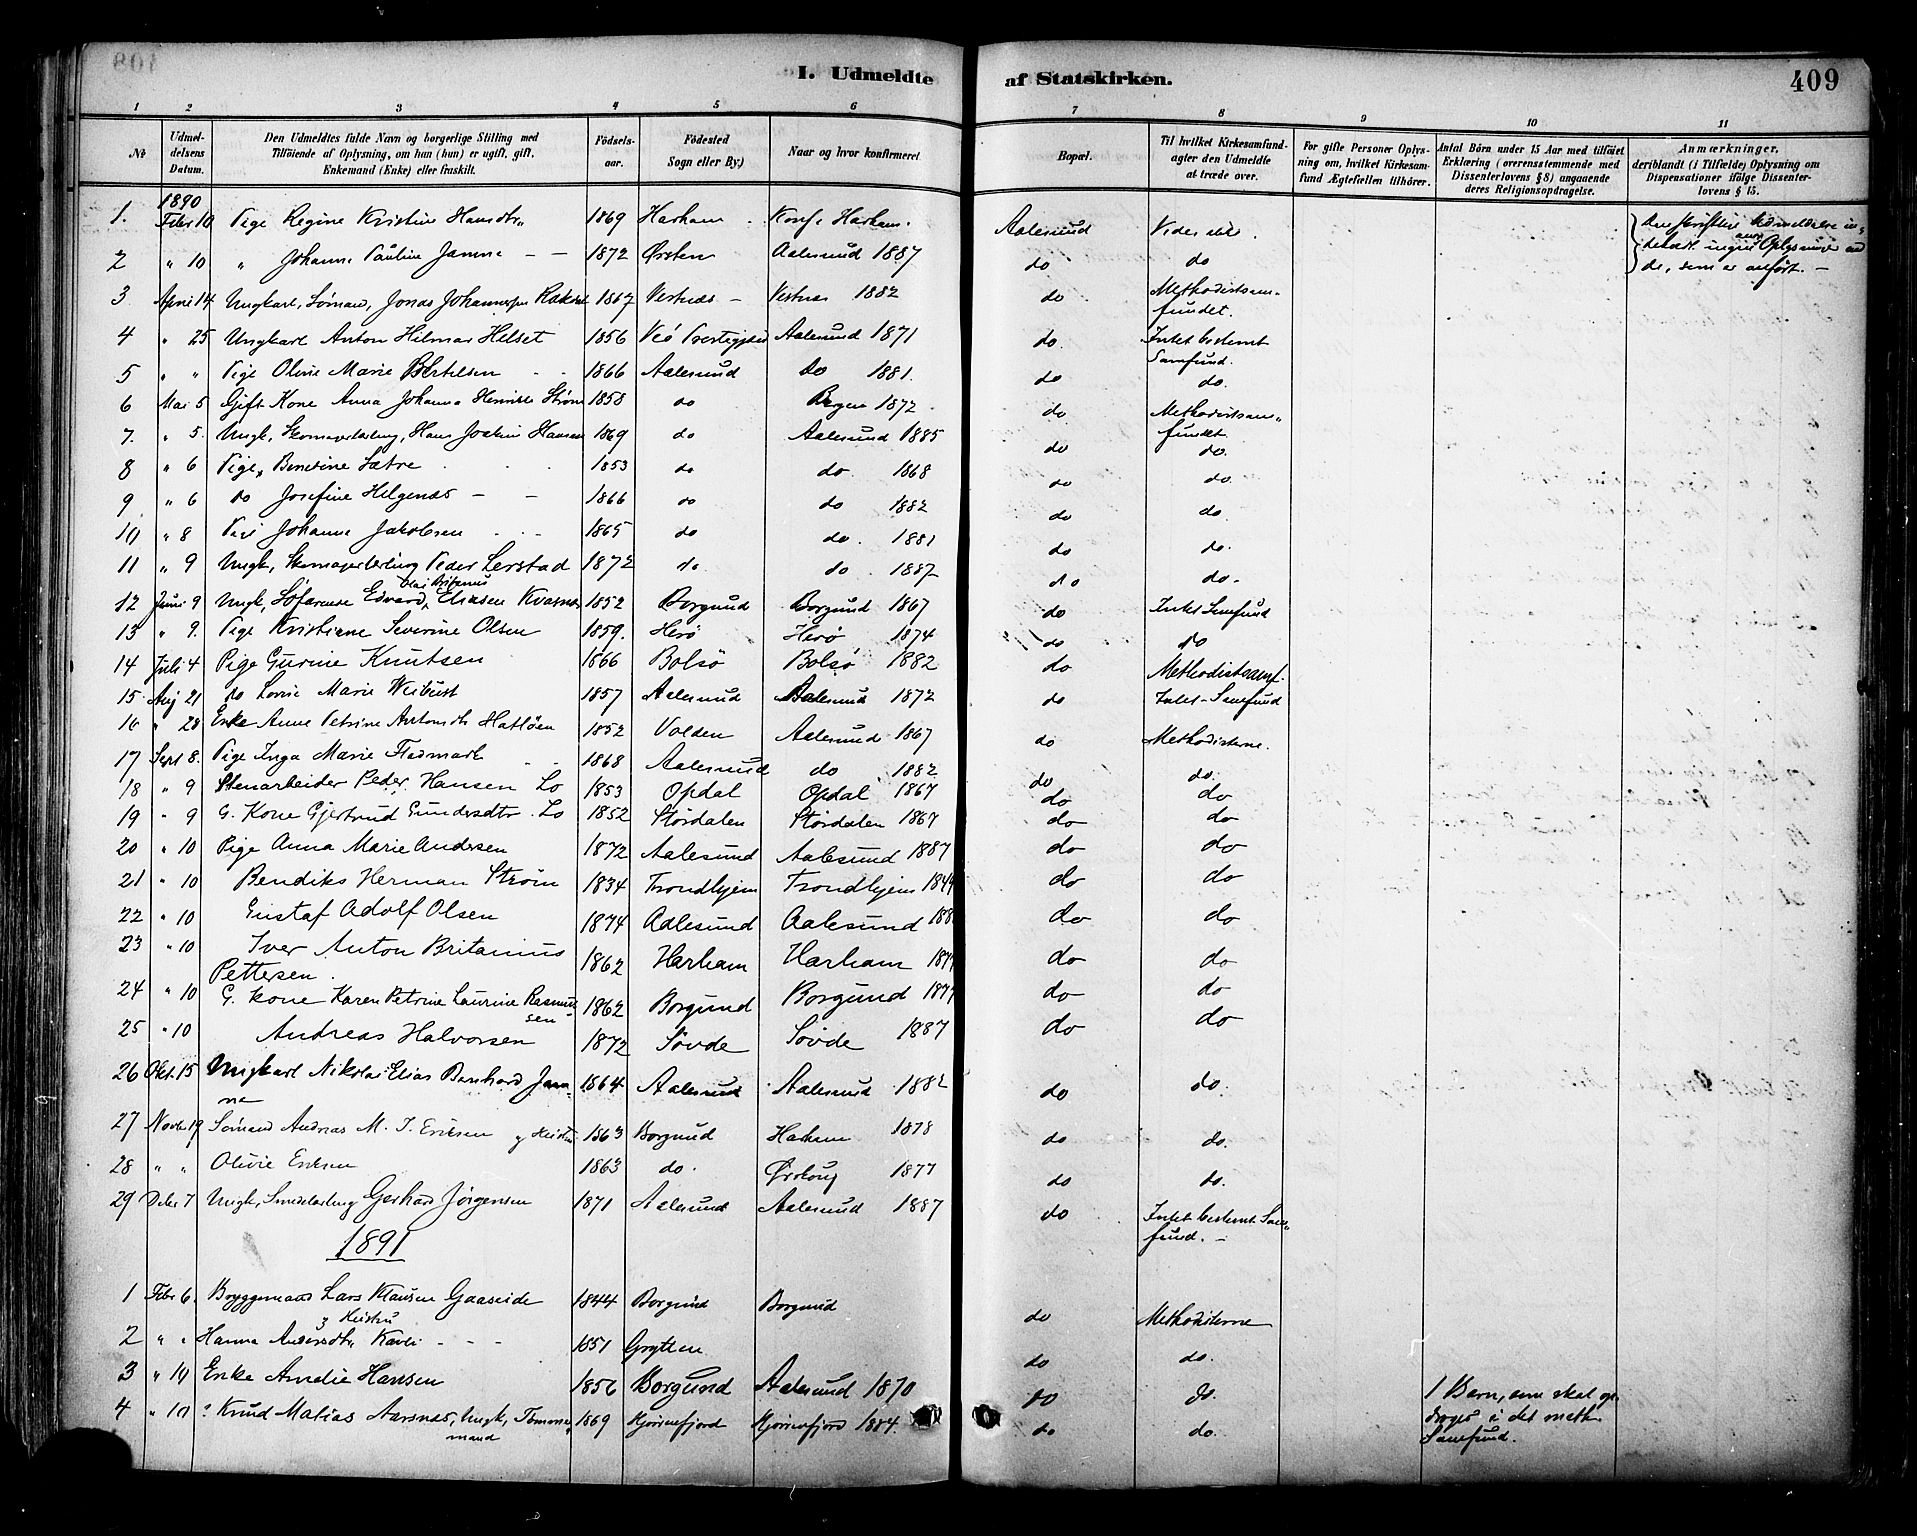 I. Udmeldte af Statskirken. 409
1 2 3 4 5 6 7 8 9 10 11
No Udmeldelsens Datum. Den Udmeldtes fulde Navn og borgerlige Stilling med Tilföiende af Oplysning, om han (hun) er ugift, gift, Enkemand (Enke) eller fraskilt. Födselsaar. Födested Sogn eller By.) Naar og hvor konfirmeret Bopæl. Til hvilket Kirkesamfund agter den Udmeldte at træde over. For gifte Personer Oplysning om, hvilket Kirkesamfund Ægtefællen tilhörer. Antal Börn under 15 Aar med tilföiet Erklæring (overensstemmende med Dissenterlovens § 8) angaaende deres Religionsopdragelse. Anmærkninger, deriblandt (i Tilfælde) Oplysning om Dispensationer ifölge Dissenterlovens § 15.
1890
1. Febr 10 Pige Regine Kristine Hansdtr. 1869 Harham Konf. i Harham. Aalesund Den skriftlige Udmeldelse indeholdt ingen andre Oplysninger end de, som er anført. —
2 " 10 " Johanne Pauline Jamne — — 1872 Ørsten Aalesund 1887 do do
3 April 14 Ungkarl, Sømand, Jonas Johannessen 1867 Vestnæs — Vestnæs 1882 do Methodistsamfundet.
4 " 25 Ungkarl Anton Hilmar Helset 1856 Veö Aalesund 1871 do. Intet bestemt Samfund.
5 " " Pige Oline Marie Bertelsen 1866 Aalesund do 1881. do do.
6 Mai 5 Gift Kone Anna Johanna Strøm 1858 do Bergen 1872. do Methodistsamfundet
7. " 5. Ungk, Skomagerlærling, Hans Joakim Hansen 1869 do Aalesund 1885 do do.
8 " 6 Pige, Bendine Sætre 1853 do do 1868 do do.
9 " 6 do Josefine Helgenæs — — 1866 do do 1882 do do.
10 " 8 Pige Johanne Jakobsen 1865 do do. 1881 do do.
11 " 9 Ungk, Skomagerlærling Peder Lerstad 1872 do. do. 1887 do do.
12 Juni 9 Ungk, Edvard Eliasen Kvasnes 1852 Borgund Borgund 1867 do Intet Samfund
13 " 9. Pige Kristiane Severine Olsen 1859. Herö Herö 1874 do do
14 Juli 4 Pige Gurine Knutsen 1866 Bolsö Bolsö 1882 do Methodistsamf.
15 Aug 21 do Marie Weibust 1857 Aalesund Aalesund 1872 do Intet Samfund
16 " 28 Enke Anne Petrine Antonsdtr Hatløen 1852 Volden Aalesund 1867 do Methodisterne.
17 Sept 8. Pige Inga Marie Fladmark 1868 Aalesund do 1882 do do.
18 " 9 Stenarbeider Peder Hansen Lo 1853 Opdal Opdal 1867 do do
19 " 9 G. Kone Gjertrud Gundersdtr. Lo 1852 Stördalen Stördalen 1867 do do
20 " 10 Pige Anna Marie Andersen 1872 Aalesund Aalesund 1887 do do
21 " 10 Bendiks Herman Strøm 1834 Trondhjem Trondhjem do do
22 " 10 Gustaf Adolf Olsen 1874 Aalesund Aalesund do do
23 " 10 Iver Anton Britanius Pettersen. 1862 Harham Harham do do
24 " 10 G. Kone Karen Petrine Laurine Rasmussen 1862 Borgund Borgund do do
25 " 10 Andreas Halvorsen 1872 Søvde Søvde 1887 do do
26 Okt. 15 Ungkarl Nikolai Elias Bernhard Jamne 1864 Aalesund Aalesund 1882 do do.
27 Novbr 19 Sømand Andreas M. J. Eriksen og Hustru 1863 Borgund Harham 1878 do do.
28 " " Olivie Eriksen 1863 do. Ørskoug 1877 do do.
29 Decbr 7 Ungk, Smedelærling Gerhard Jørgensen 1871 Aalesund Aalesund 1887 do Intet bestemt Samfund. —
1891
1 Febr 6. Bryggemand Lars Klausen Gaaseide 1844 Borgund Borgund do Methodisterne
og Hustru
2 " " Hanna Andersdtr. Kavli — — 1851 Grytten do do.
3 " 10 Enke Amelie Hansen 1856 Borgund Aalesund 1870 do do. 1 Barn, som skal opdrages i det meth. Samfund.
4 " 10 Knud Matias Aarsnes, Ungk, Tømmermand 1869 Hjørinfjord Hjørinfjord 1884. do do.